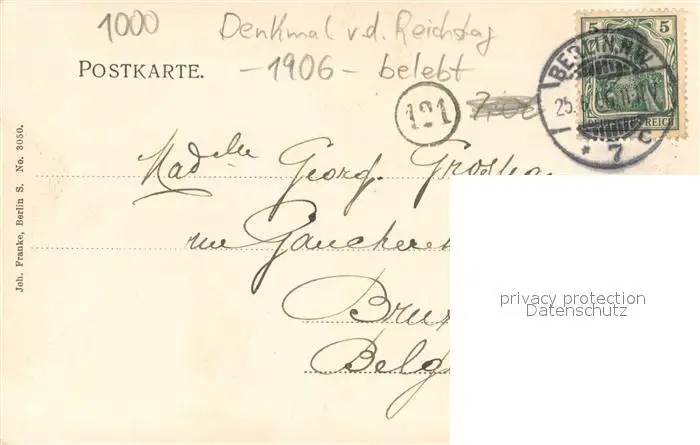 1000
Denkmal v.d. Reichstag
-1906- belebt
POSTKARTE.
5 5
DEUTSCHES REICH
BERLIN. N.W.
25.
* 7 C
191
Madelle Georg.
rue
Brux
Belg
Joh. Franke, Berlin S. No. 3050.
privacy protection
Datenschutz